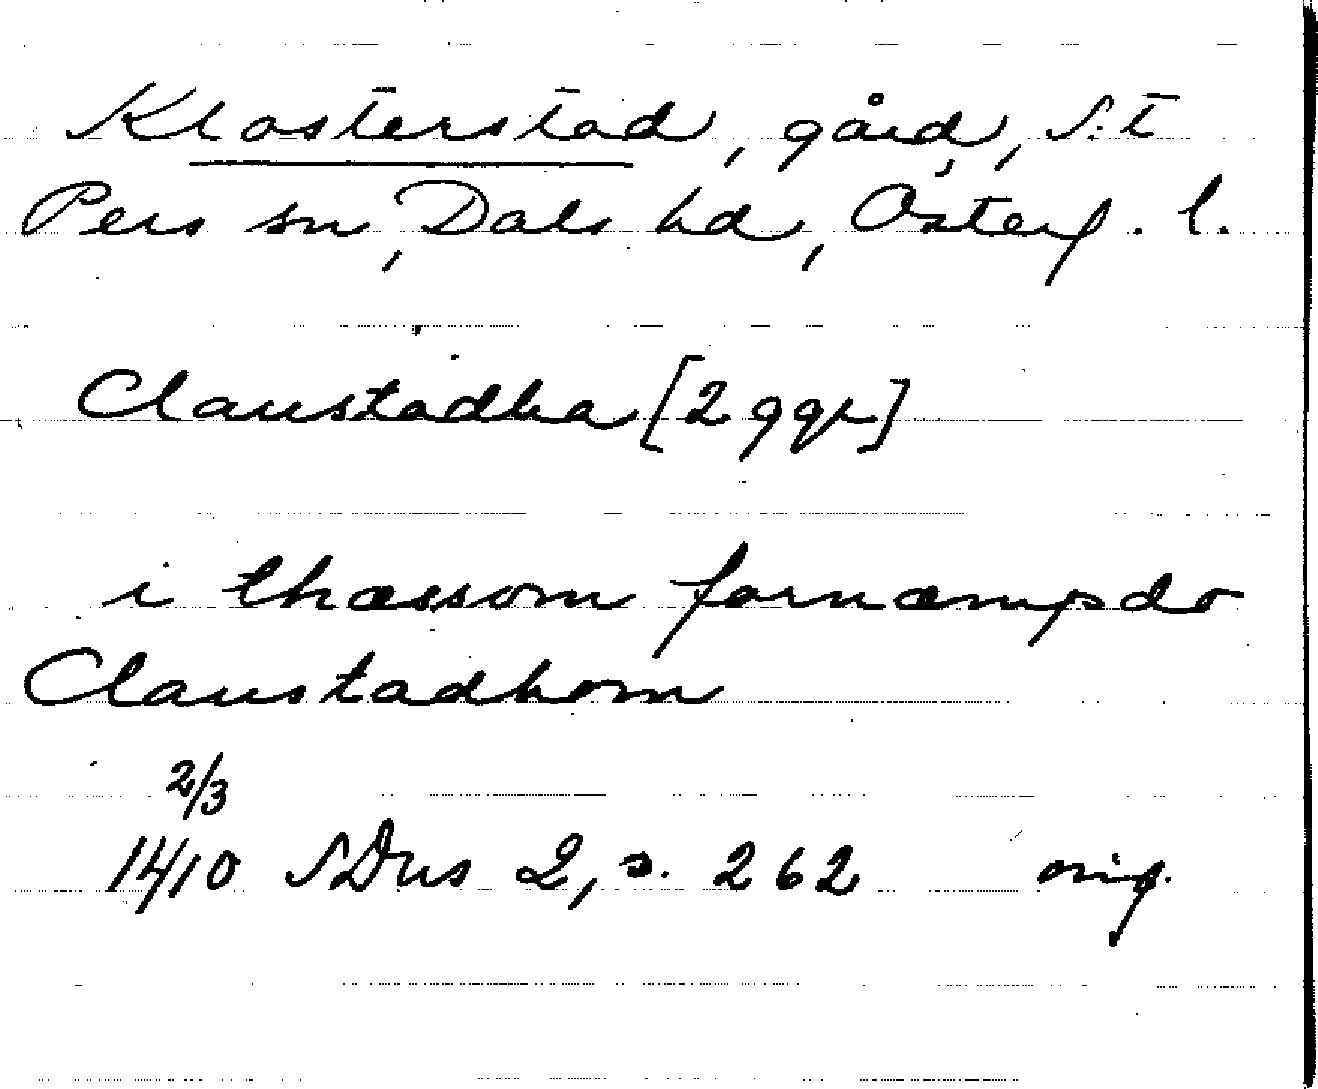 Klosterstad, gård, S:t
Pers sn, Dals hd, Österg. l.
Claustadha [2 ggr]
i thæssom fornæmpdo
Claustadhom
2/3
1410 SDns 2, s. 262 orig.